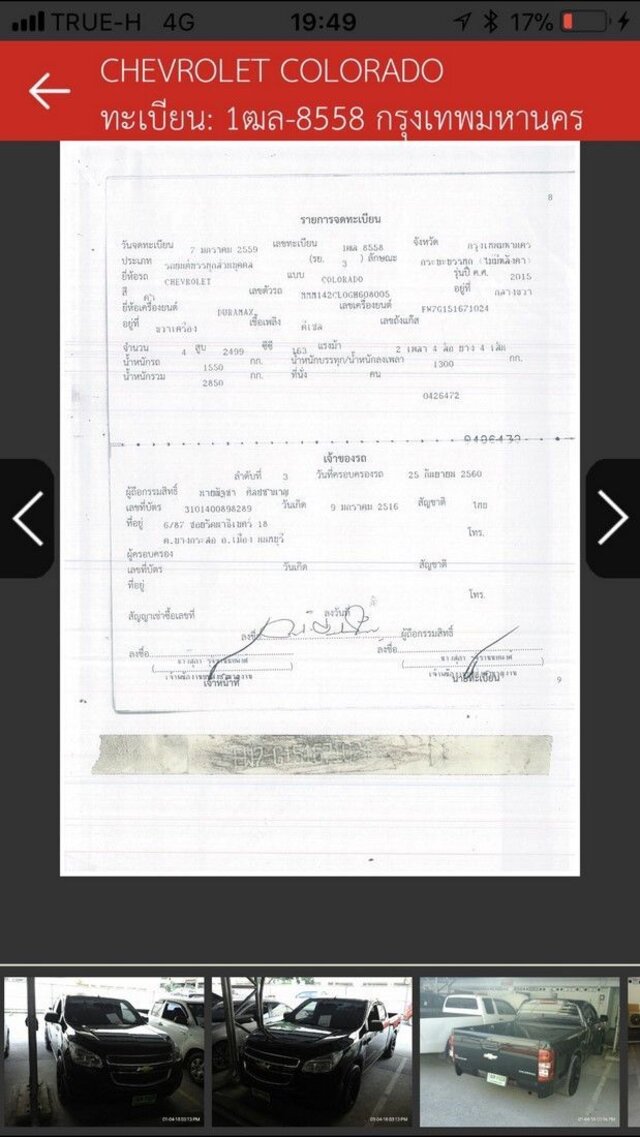 TRUE-H 4G 19:49 17%
CHEVROLET COLORADO
ทะเบียน: 1ฒล-8558 กรุงเทพมหานคร
8
รายการจดทะเบียน
วันจดทะเบียน 7 มกราคม 2559 เลขทะเบียน 1ฒล 8558 จังหวัด กรุงเทพมหานคร
ประเภท รถยนต์บรรทุกส่วนบุคคล (รย. 3 ) ลักษณะ กระบะบรรทุก (ไม่มีหลังคา)
ยี่ห้อรถ CHEVROLET แบบ COLORADO รุ่นปี ค.ศ. 2015
สี ดำ เลขตัวรถ MMM142CL0GH608005 อยู่ที่ กลางขวา
ยี่ห้อเครื่องยนต์ DURAMAX เลขเครื่องยนต์ FW7G151671024
อยู่ที่ ขวาเครื่อง เชื้อเพลิง ดีเซล เลขถังแก๊ส
จำนวน 4 สูบ 2499 ซีซี 163 แรงม้า 2 เพลา 4 ล้อ ยาง 4 เส้น
น้ำหนักรถ 1550 กก. น้ำหนักบรรทุก/น้ำหนักลงเพลา 1300 กก.
น้ำหนักรวม 2850 กก. ที่นั่ง คน
0426472
0426473
เจ้าของรถ
ลำดับที่ 3 วันที่ครอบครองรถ 25 กันยายน 2560
ผู้ถือกรรมสิทธิ์
เลขที่บัตร 3101400898289 วันเกิด 9 มกราคม 2516 สัญชาติ ไทย
ที่อยู่ 6/87 ซอยรัตนาธิเบศร์ 18 โทร.
ต.บางกระสอ อ.เมือง นนทบุรี
ผู้ครอบครอง
เลขที่บัตร วันเกิด สัญชาติ
ที่อยู่
โทร.
สัญญาเช่าซื้อเลขที่ ลงวันที่
ลงชื่อ ผู้ถือกรรมสิทธิ์
ลงชื่อ ลงชื่อ
เจ้าหน้าที่ นายทะเบียน
9